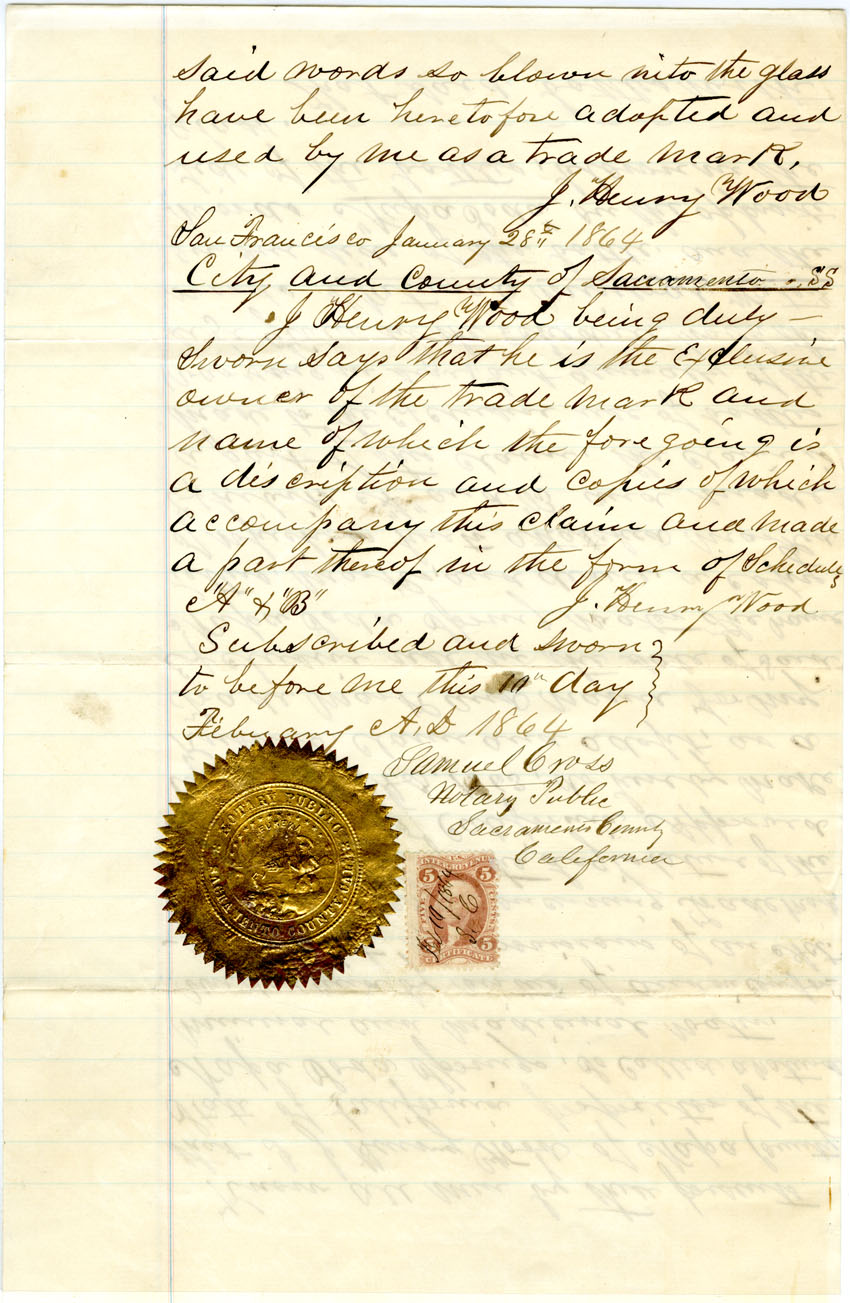 said words so blown into the glass
have been heretofore adopted and
used by me as a trade mark.
J. Henry Wood
San Francisco January 28th 1864
City and County of Sacramento SS
J Henry Wood being duly
Sworn Says that he is the Exclusive
owner of the trade mark and
name of which the foregoing is
a discription and copies of which
accompany this claim and made
a part thereof in the form of Schedules
"A" & "B"
J. Henry Wood
Subscribed and sworn
to before me this 10th day
February A.D 1864
Samuel Cross
Notary Public
Sacramento County
California
NOTARY PUBLIC
SACRAMENTO COUNTY CAL.
EUREKA
INTER. REV.
5 5
FIVE CENTS
5
CERTIFICATE
Feb 10/1864
S. C